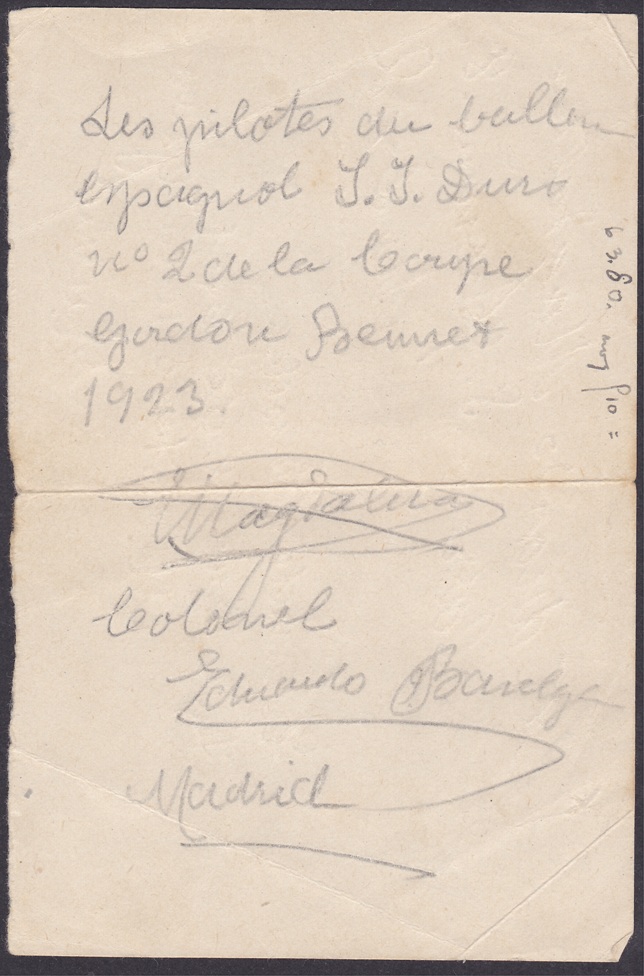 Les pilotes du ballon
espagnol J. J. Duro
nº 2 de la Coupe
Gordon Bennet
1923.
Magdalena
Colonel
Eduardo
Madrid